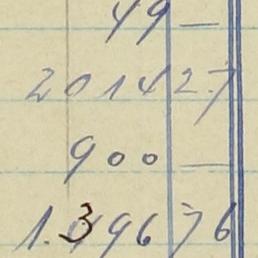 49 —
2014 27
900 —
1.396 76